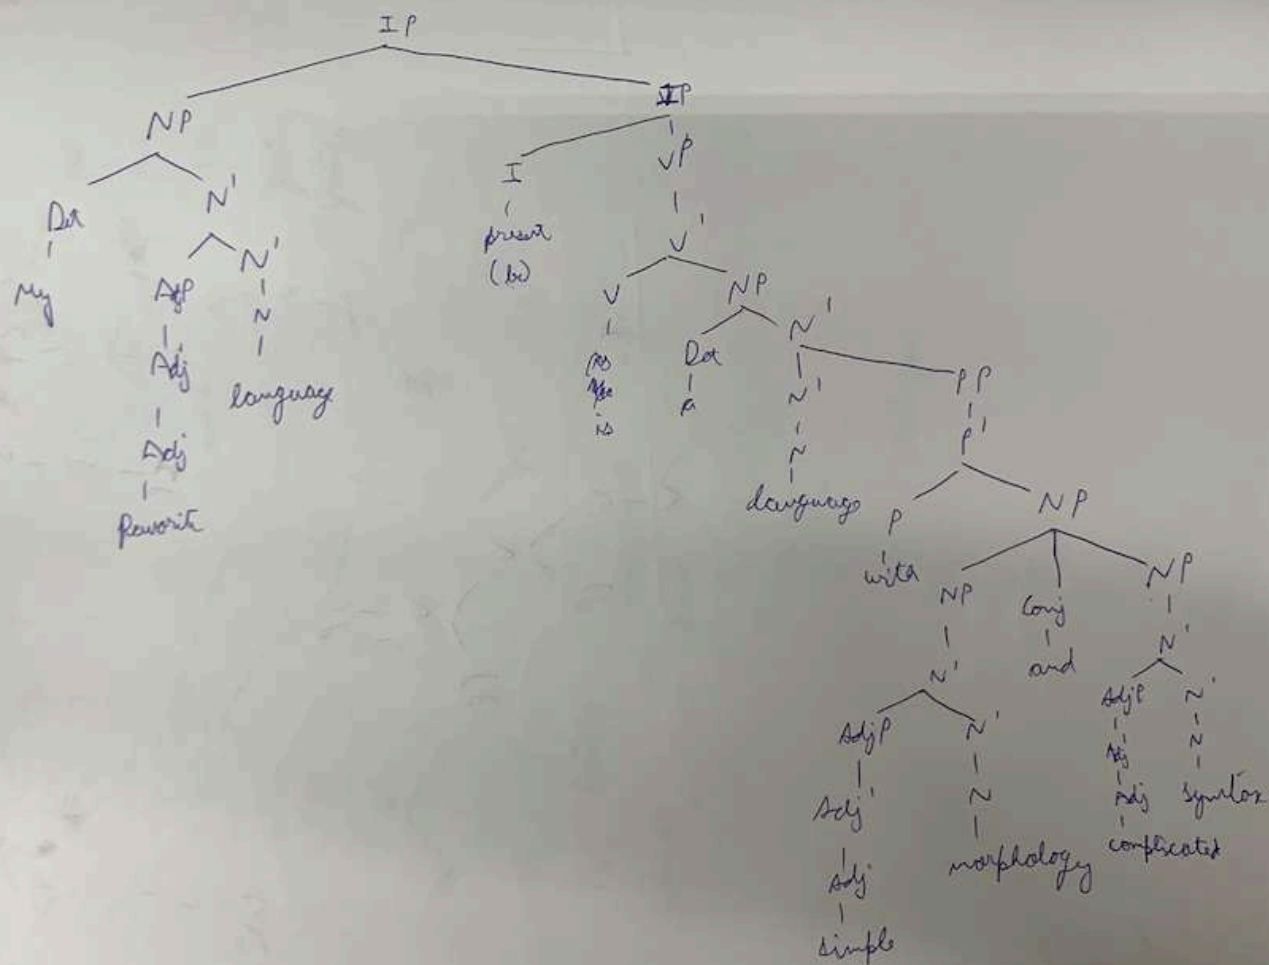 IP
NP IP
Det N' I VP
My AdjP N' present V'
Adj N (be) V NP
Adj language is Det N'
favorite a N' PP
N P'
language P NP
with NP Conj NP
N' and N'
AdjP N' AdjP N'
Adj' N Adj N
Adj morphology Adj syntax
simple complicated